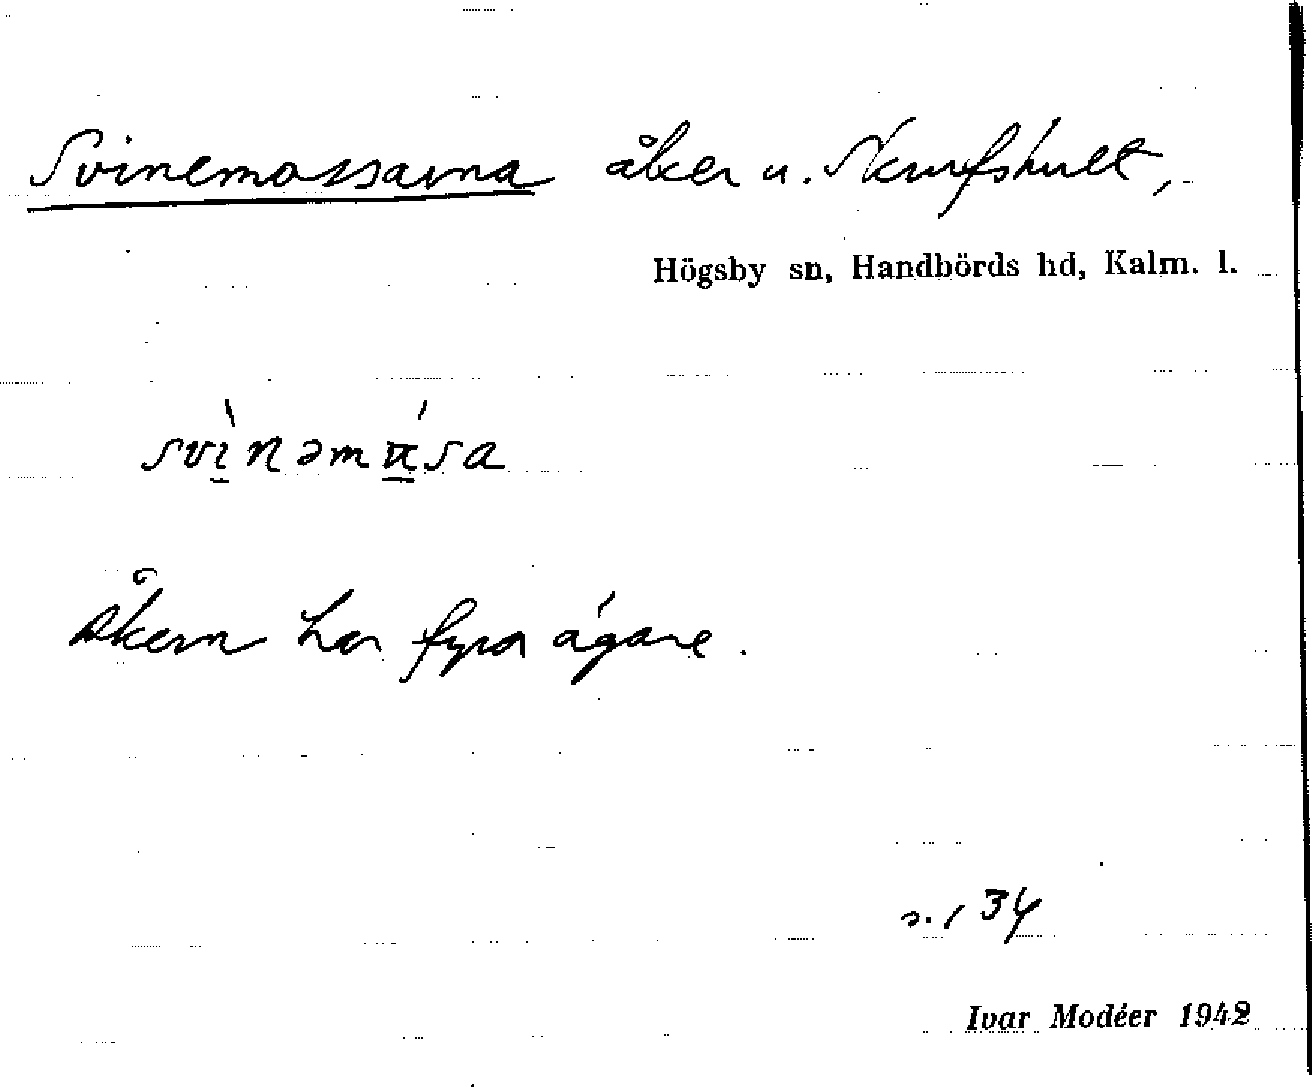 Svinemossarna åker u. Skurfshult,
Högsby sn, Handbörds hd, Kalm. l.
Åkern har fyra ägare.
s. 134
Ivar Modéer 1942